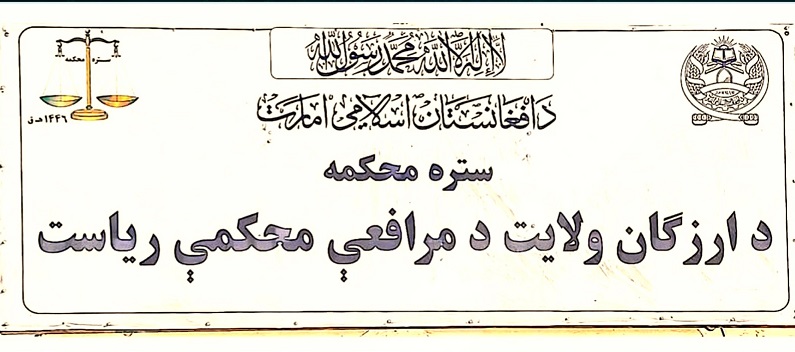 لا إله إلا الله محمد رسول الله
د افغانستان اسلامي امارت
ستره محکمه
۱۴۴۶ هـ ق
ستره محکمه
د ارزگان ولایت د مرافعې محکمې ریاست